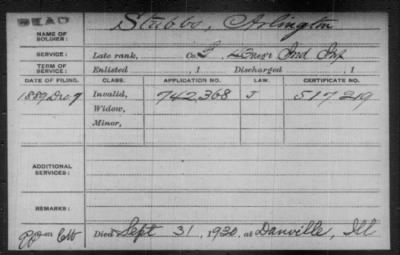 DEAD
NAME OF SOLDIER: Stubbs, Arlington
SERVICE: Late rank, Co. I, 4 Reg't Ind Inf
TERM OF SERVICE: Enlisted , 1 Discharged , 1
DATE OF FILING. CLASS. APPLICATION NO. LAW. CERTIFICATE NO.
1889 Invalid, 742,368 J 517219
Widow,
Minor,
ADDITIONAL SERVICES:
REMARKS:
Died Sept 31, 1930, at Danville, Ill